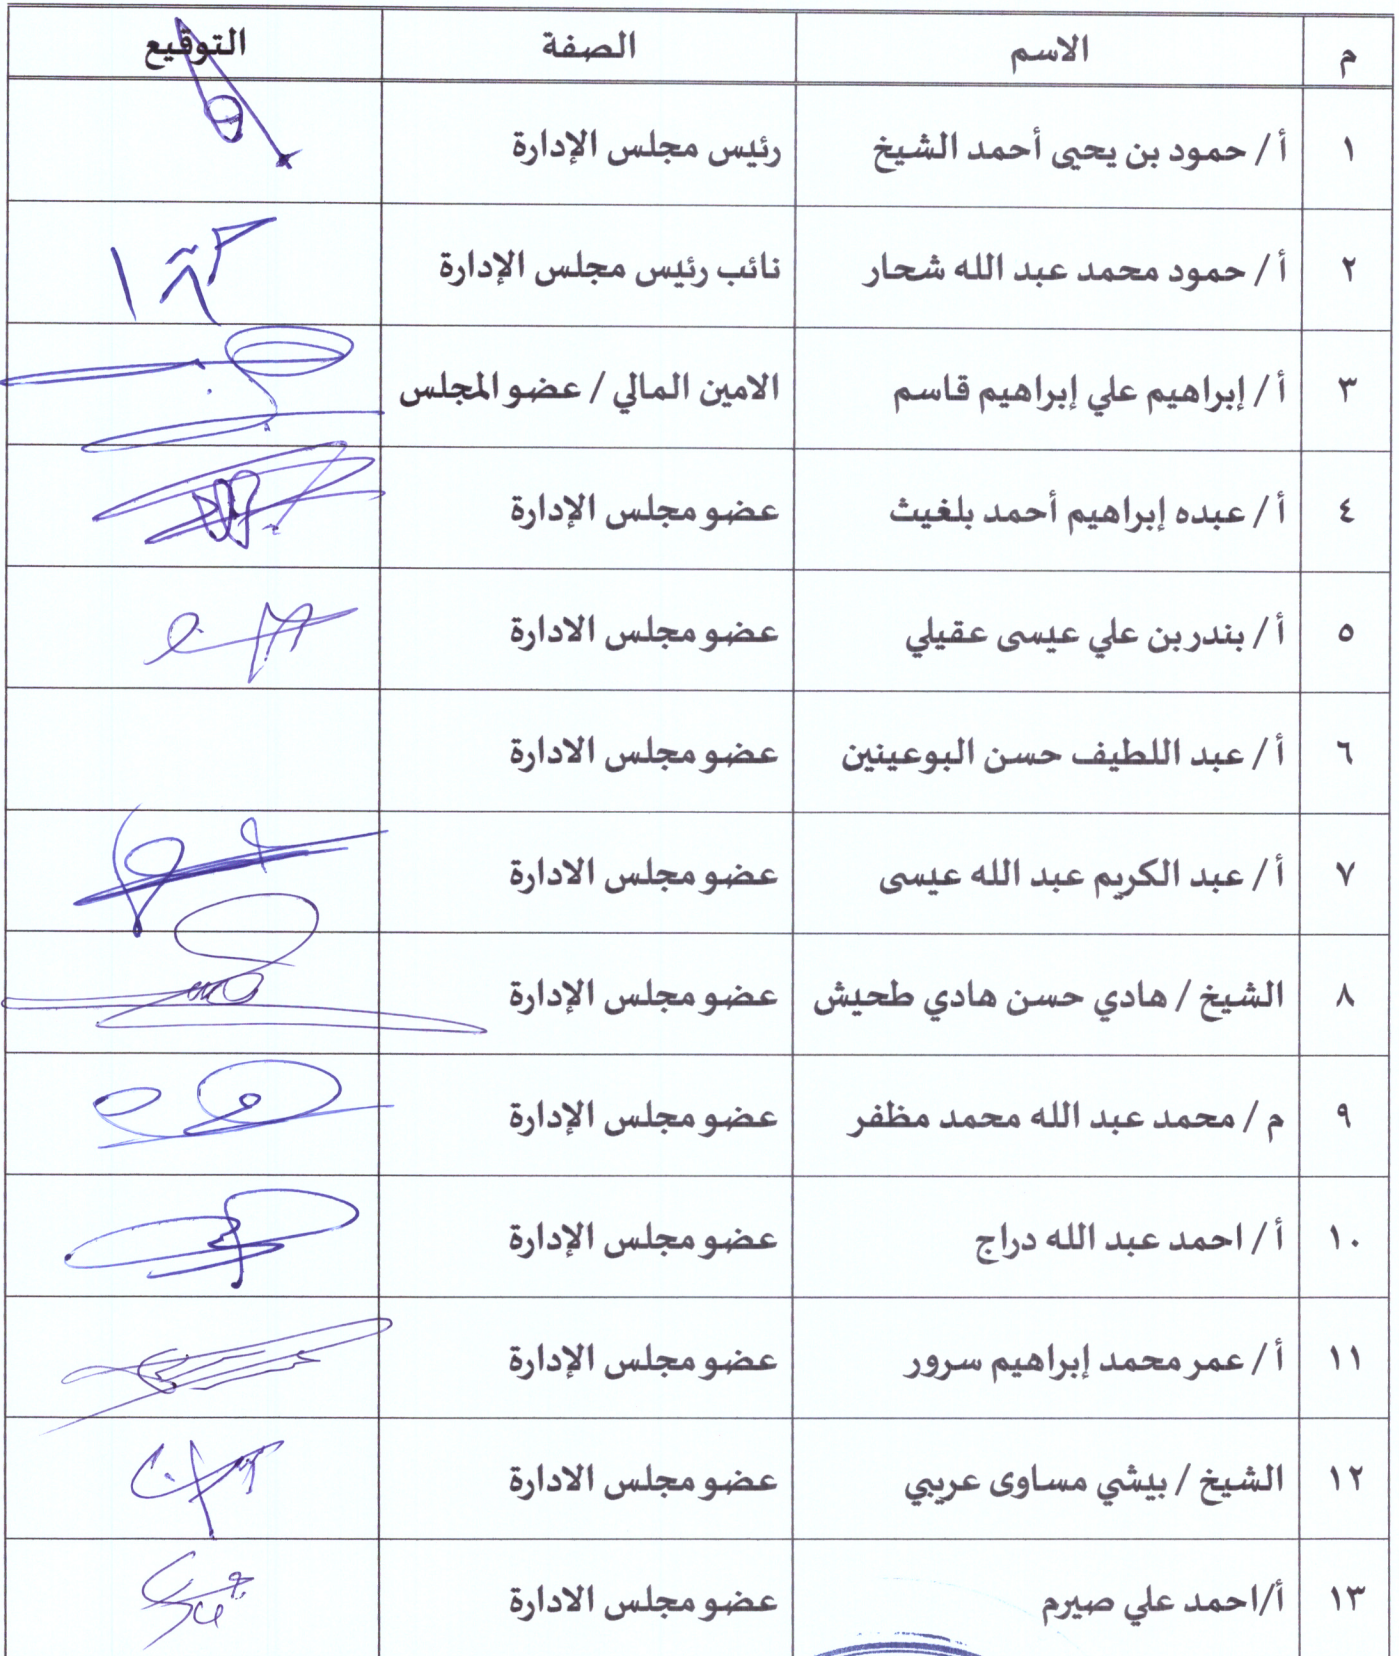 م الاسم الصفة التوقيع
١ أ/ حمود بن يحيى أحمد الشيخ رئيس مجلس الإدارة
٢ أ/ حمود محمد عبد الله شحار نائب رئيس مجلس الإدارة
٣ أ/ إبراهيم علي إبراهيم قاسم الامين المالي / عضو المجلس
٤ أ/ عبده إبراهيم أحمد بلغيث عضو مجلس الإدارة
٥ أ/ بندر بن علي عيسى عقيلي عضو مجلس الادارة
٦ أ/ عبد اللطيف حسن البوعينين عضو مجلس الادارة
٧ أ/ عبد الكريم عبد الله عيسى عضو مجلس الادارة
٨ الشيخ / هادي حسن هادي طحيش عضو مجلس الإدارة
٩ م / محمد عبد الله محمد مظفر عضو مجلس الإدارة
١٠ أ/ احمد عبد الله دراج عضو مجلس الإدارة
١١ أ/ عمر محمد إبراهيم سرور عضو مجلس الإدارة
١٢ الشيخ / بيشي مساوى عريبي عضو مجلس الادارة
١٣ أ/احمد علي صيرم عضو مجلس الادارة